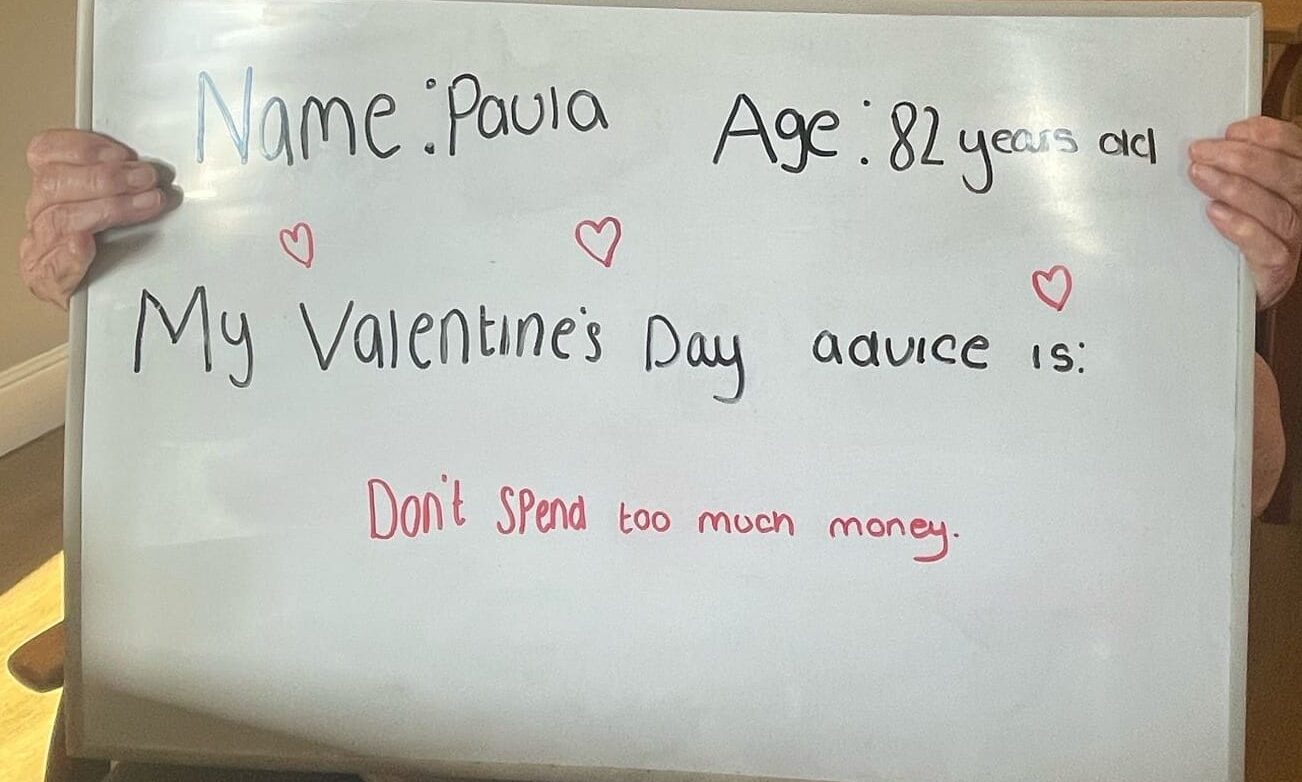 Name: Paula Age: 82 years old
My Valentine's Day advice is:
Don't spend too much money.